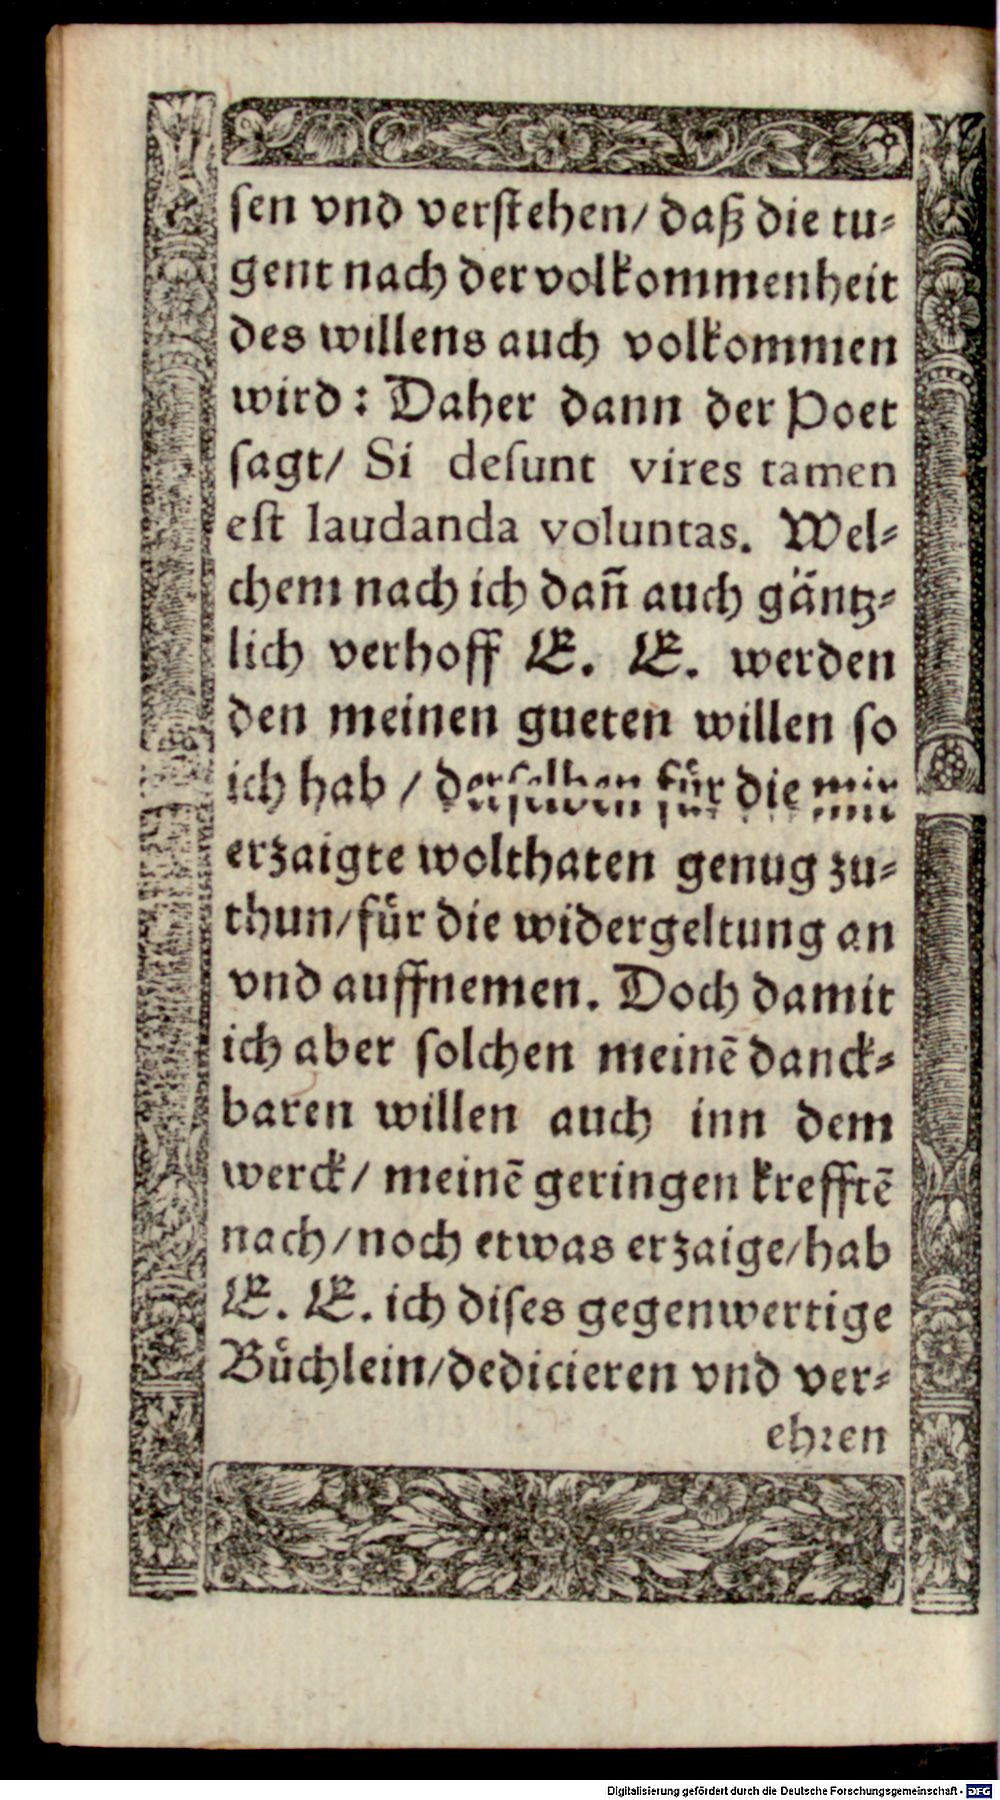 sen vnd verstehen/ daß die tu⸗
gent nach der volkommenheit
des willens auch volkommen
wird: Daher dann der Poet
sagt/ Si desunt vires tamen
est laudanda voluntas. Wel⸗
chem nach ich dañ auch gäntz⸗
lich verhoff E. E. werden
den meinen gueten willen so
ich hab / derselben für die mir
erzaigte wolthaten genug zu⸗
thun/für die widergeltung an
vnd auffnemen. Doch damit
ich aber solchen meinē danck⸗
baren willen auch inn dem
werck/ meinē geringen krefftē
nach/noch etwas erzaige/hab
E. E. ich dises gegenwertige
Büchlein/dedicieren vnd ver⸗
ehren
Digitalisierung gefördert durch die Deutsche Forschungsgemeinschaft - DFG